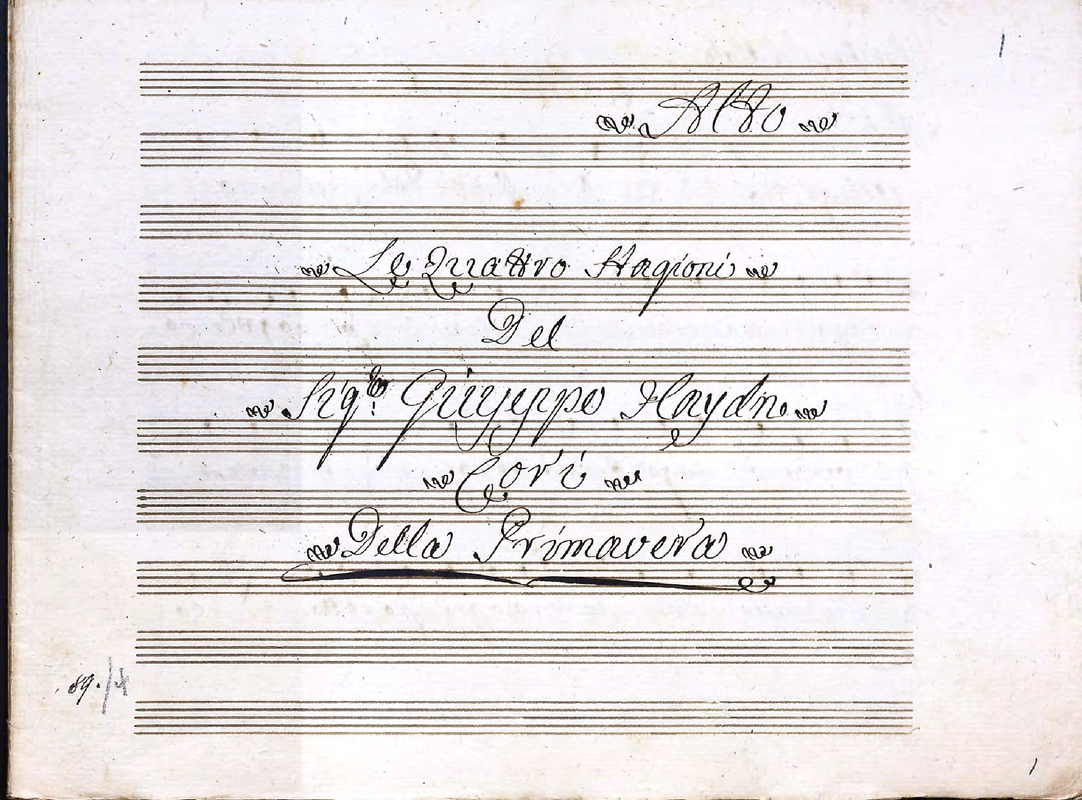 1
Alto
Le Quattro Stagioni
Del
Sigre: Giuseppe Haydn.
Cori
Della Primavera
89./4
1